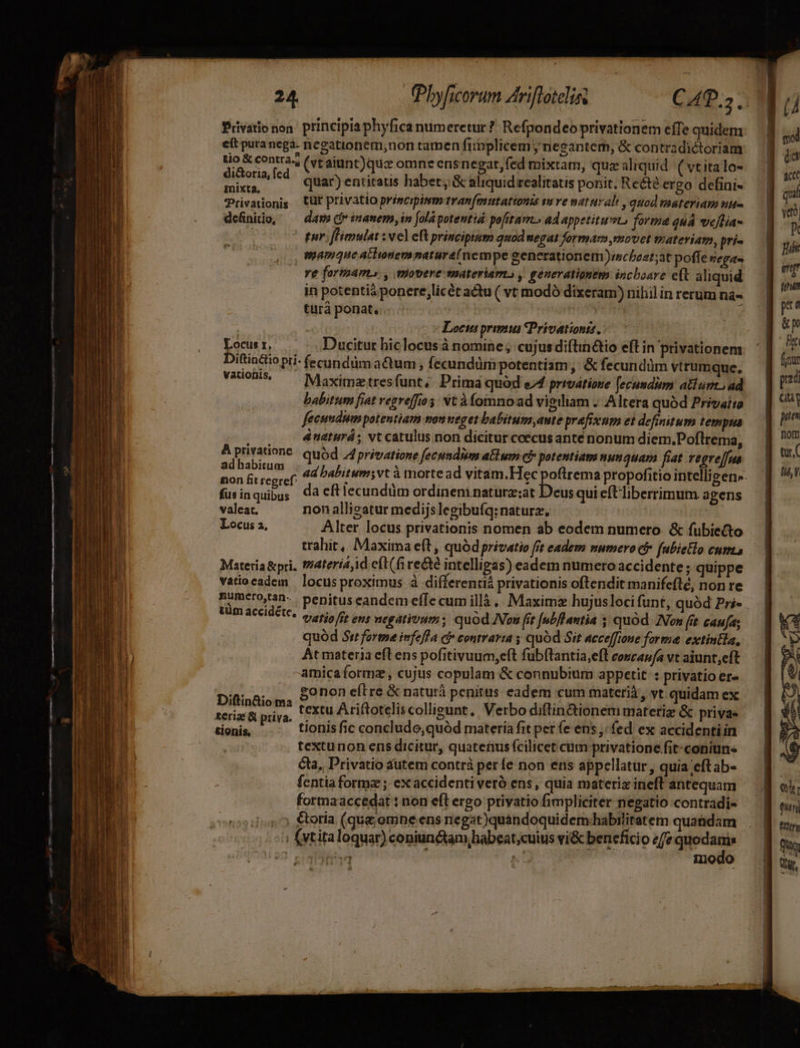 24 Phyſicorum Ariſtotelis CAP.3.
principia phyſica numeretur? Reſpondeo privationem eſſe quidem
negationem, non tamen ſimplicem, negantem, & contradictoriam
(vt aiunt) quæ omne ens negat, ſed mixtam, quæ aliquid (vt ita lo-
quar) entitatis habet, & aliquid realitatis ponit. Rectè ergo defini-
tur privatio principium tranſmutationis in re naturali, quod materiam nu-
dam & inanem, in ſolâ potentiâ poſitam, ad appetitum, formæ quâ veſtia-
tur, ſtimulat: vel eſt principium quod negat formam, movet materiam, pri-
mamque actionem naturæ (nempe generationem) inchoat; at poſſe nega-
re formam, movere materiam, generationem inchoare eſt aliquid
in potentiâ ponere, licèt actu (vt modò dixeram) nihil in rerum na-
turâ ponat.
Locus primus Privationis.
Ducitur hic locus à nomine, cujus diſtinctio eſt in privationem
ſecundùm actum, ſecundùm potentiam, & ſecundùm vtrumque.
Maximæ tres ſunt. Prima quòd à privatione ſecundùm actum ad
habitum fiat regreſſio; vt à ſomno ad vigiliam. Altera quòd Privatio
ſecundùm potentiam non neget habitum, ante prafixum et definitum tempus
à naturâ; vt catulus non dicitur cœcus ante nonum diem. Poſtrema,
quòd A privatione ſecundùm actum & potentiam nunquam fiat regreſſus
ad habitum; vt à morte ad vitam. Hec poſtrema propoſitio intelligen-
da eſt ſecundùm ordinem naturæ: at Deus qui eſt liberrimum agens
non alligatur medijs legibuſq; naturæ.
Alter locus privationis nomen ab eodem numero & ſubiecto
trahit. Maxima eſt, quòd privatio ſit eadem numero & ſubiecto cum
materiâ, id eſt (ſi rectè intelligas) eadem numero accidente; quippe
locus proximus à differentiâ privationis oſtendit manifeſtè, non re
penitus eandem eſſe cum illâ. Maximæ hujus loci ſunt, quòd Pri-
vatio ſit ens negativum; quòd Non ſit ſubſtantia; quòd Non ſit cauſa;
quòd Sit formæ infeſta & contraria; quòd Sit acceſſione formæ extincta.
At materia eſt ens poſitivuum, eſt ſubſtantia, eſt concauſa vt aiunt, eſt
amica formæ, cujus copulam & connubium appetit: privatio er-
go non eſt re & naturâ penitus eadem cum materiâ, vt quidam ex
textu Ariſtotelis colligunt. Verbo diſtinctionem materiæ & priva-
tionis ſic concludo, quòd materia ſit per ſe ens, ſed ex accidenti in
textu non ens dicitur, quatenus ſcilicet cum privatione ſit coniun-
cta, Privatio autem contrà per ſe non ens appellatur, quia eſt ab-
ſentia formæ; ex accidenti verò ens, quia materiæ ineſt antequam
forma accedat: non eſt ergo privatio ſimpliciter negatio contradi-
ctoria (quæ omne ens negat) quandoquidem habilitatem quandam
(vt ita loquar) coniunctam habeat, cuius vi & beneficio eſſe quodam
modo
Privatio non
eſt pura nega-
tio & contra-
dictoria, ſed
mixta.
Privationis
definitio,
Locus 1,
Diſtinctio pri-
vationis,
A privatione
ad habitum
non fit regreſ-
ſus in quibus
valeat,
Locus 2,
Materia & pri-
vatio eadem
numero, tan-
tùm accidéte,
Diſtinctio ma
teriæ & priva-
tionis,